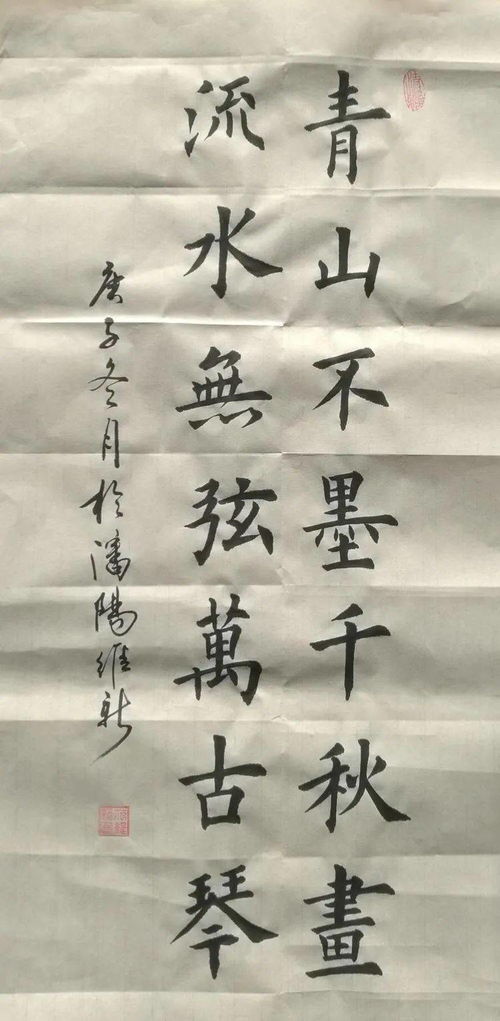 青山不墨千秋畫
流水無弦萬古琴
庚子冬月於瀋陽維新